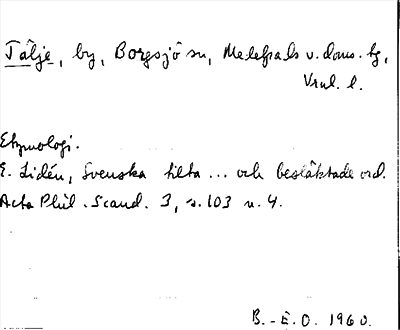 Tälje, by, Borgsjö sn, Medelpads v. doms. tg,
Vnl. l.
Etymologi.
E. Lidén, Svenska tilta ... och besläktade ord.
Acta Phil. Scand. 3, s. 103 n. 4.
B.-E.O. 1960.